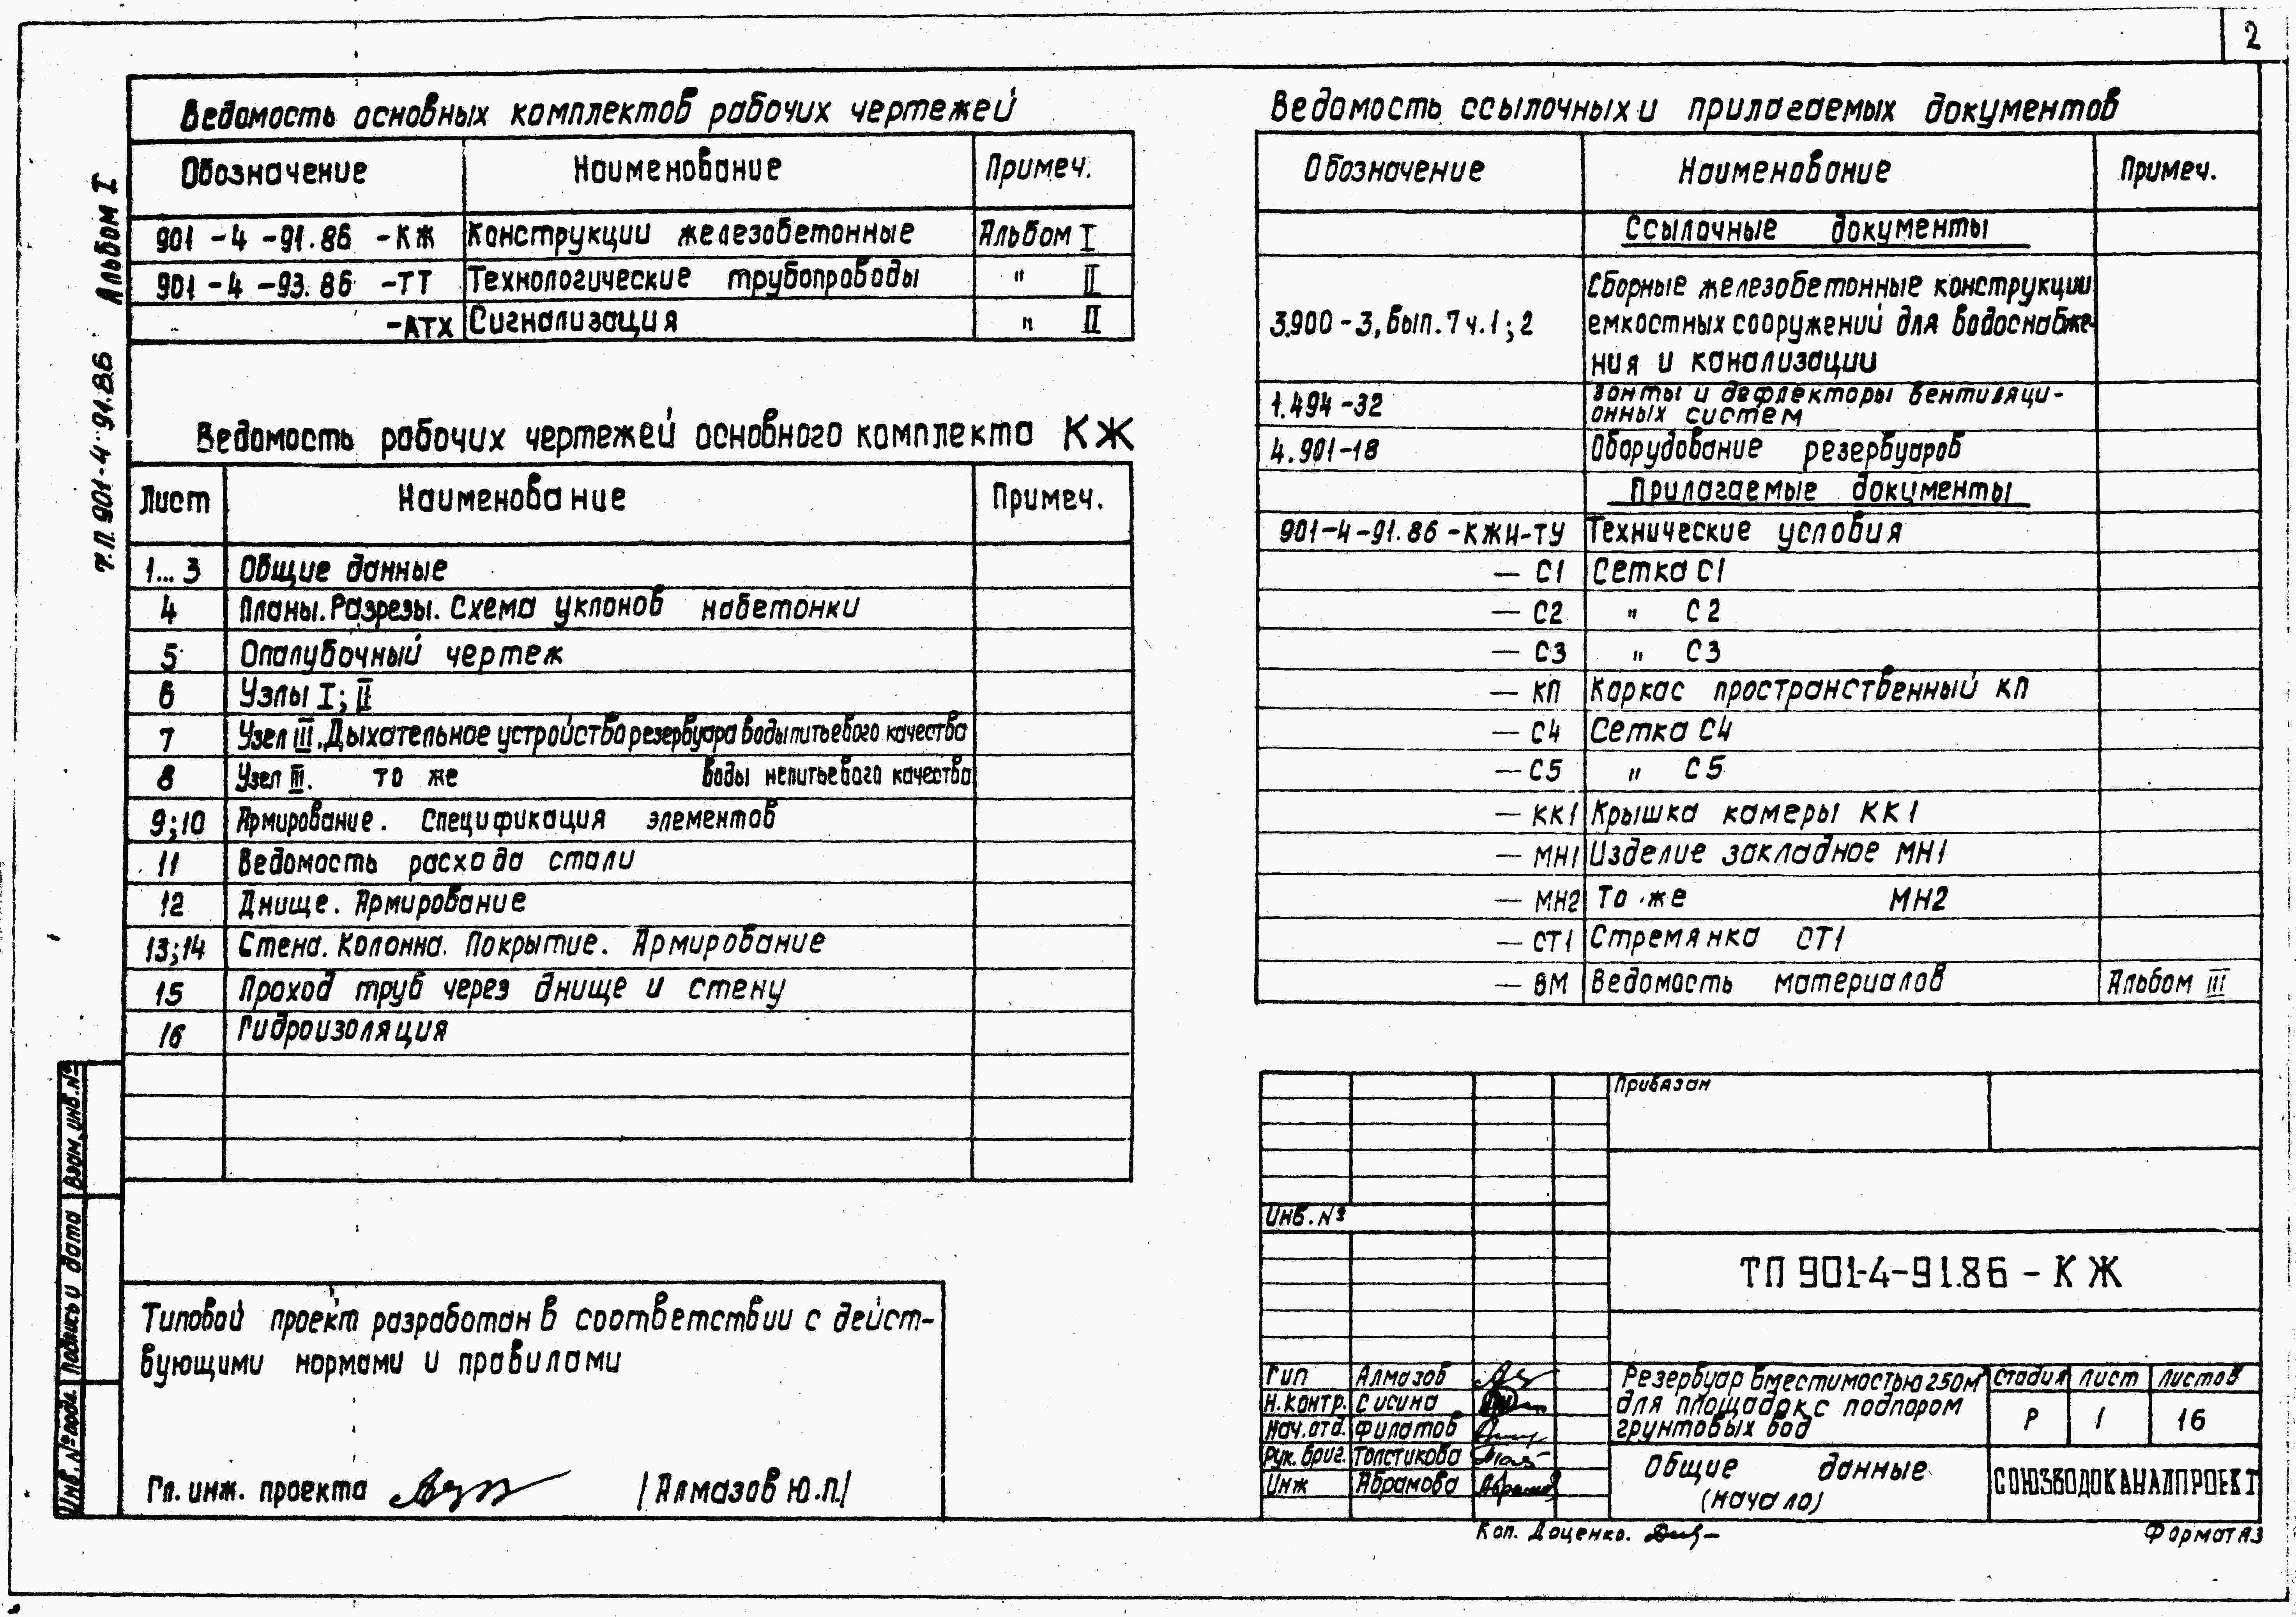 2
Альбом I
т.п. 901-4-91.86
Ведомость основных комплектов рабочих чертежей
Обозначение Наименование Примеч.
901-4-91.86 -КЖ Конструкции железобетонные Альбом I
901-4-93.86 -ТТ Технологические трубопроводы " II
-АТХ Сигнализация " II
Ведомость рабочих чертежей основного комплекта КЖ
Лист Наименование Примеч.
1...3 Общие данные
4 Планы. Разрезы. Схема уклонов набетонки
5 Опалубочный чертеж
6 Узлы I; II
7 Узел III. Дыхательное устройство резервуара воды питьевого качества
8 Узел III. то же воды непитьевого качества
9;10 Армирование. Спецификация элементов
11 Ведомость расхода стали
12 Днище. Армирование
13;14 Стена. Колонна. Покрытие. Армирование
15 Проход труб через днище и стену
16 Гидроизоляция
Типовой проект разработан в соответствии с дейст-
вующими нормами и правилами
Гл. инж. проекта /Алмазов Ю.П./
Взам. инв. №
Подпись и дата
Инв. № подл.
Ведомость ссылочных и прилагаемых документов
Обозначение Наименование Примеч.
Ссылочные документы
3.900-3, Вып. 7 ч. 1; 2 Сборные железобетонные конструкции
емкостных сооружений для водоснабже-
ния и канализации
1.494-32 Зонты и дефлекторы вентиляци-
онных систем
4.901-18 Оборудование резервуаров
Прилагаемые документы
901-4-91.86-КЖИ-ТУ Технические условия
— С1 Сетка С1
— С2 " С2
— С3 " С3
— КП Каркас пространственный КП
— С4 Сетка С4
— С5 " С5
— КК1 Крышка камеры КК1
— МН1 Изделие закладное МН1
— МН2 То же МН2
— СТ1 Стремянка СТ1
— ВМ Ведомость материалов Альбом III
Привязан
Инв. №
ТП 901-4-91.86 - КЖ
Гип Алмазов
Н.контр. Сисина
Нач.отд. Филатов
Рук. бриг. Толстикова
Инж Абрамова
Резервуар вместимостью 250м³
для площадок с подпором
грунтовых вод
Стадия Лист Листов
Р 1 16
Общие данные
(начало)
СОЮЗВОДОКАНАЛПРОЕКТ
Коп. Доценко.
Формат А3